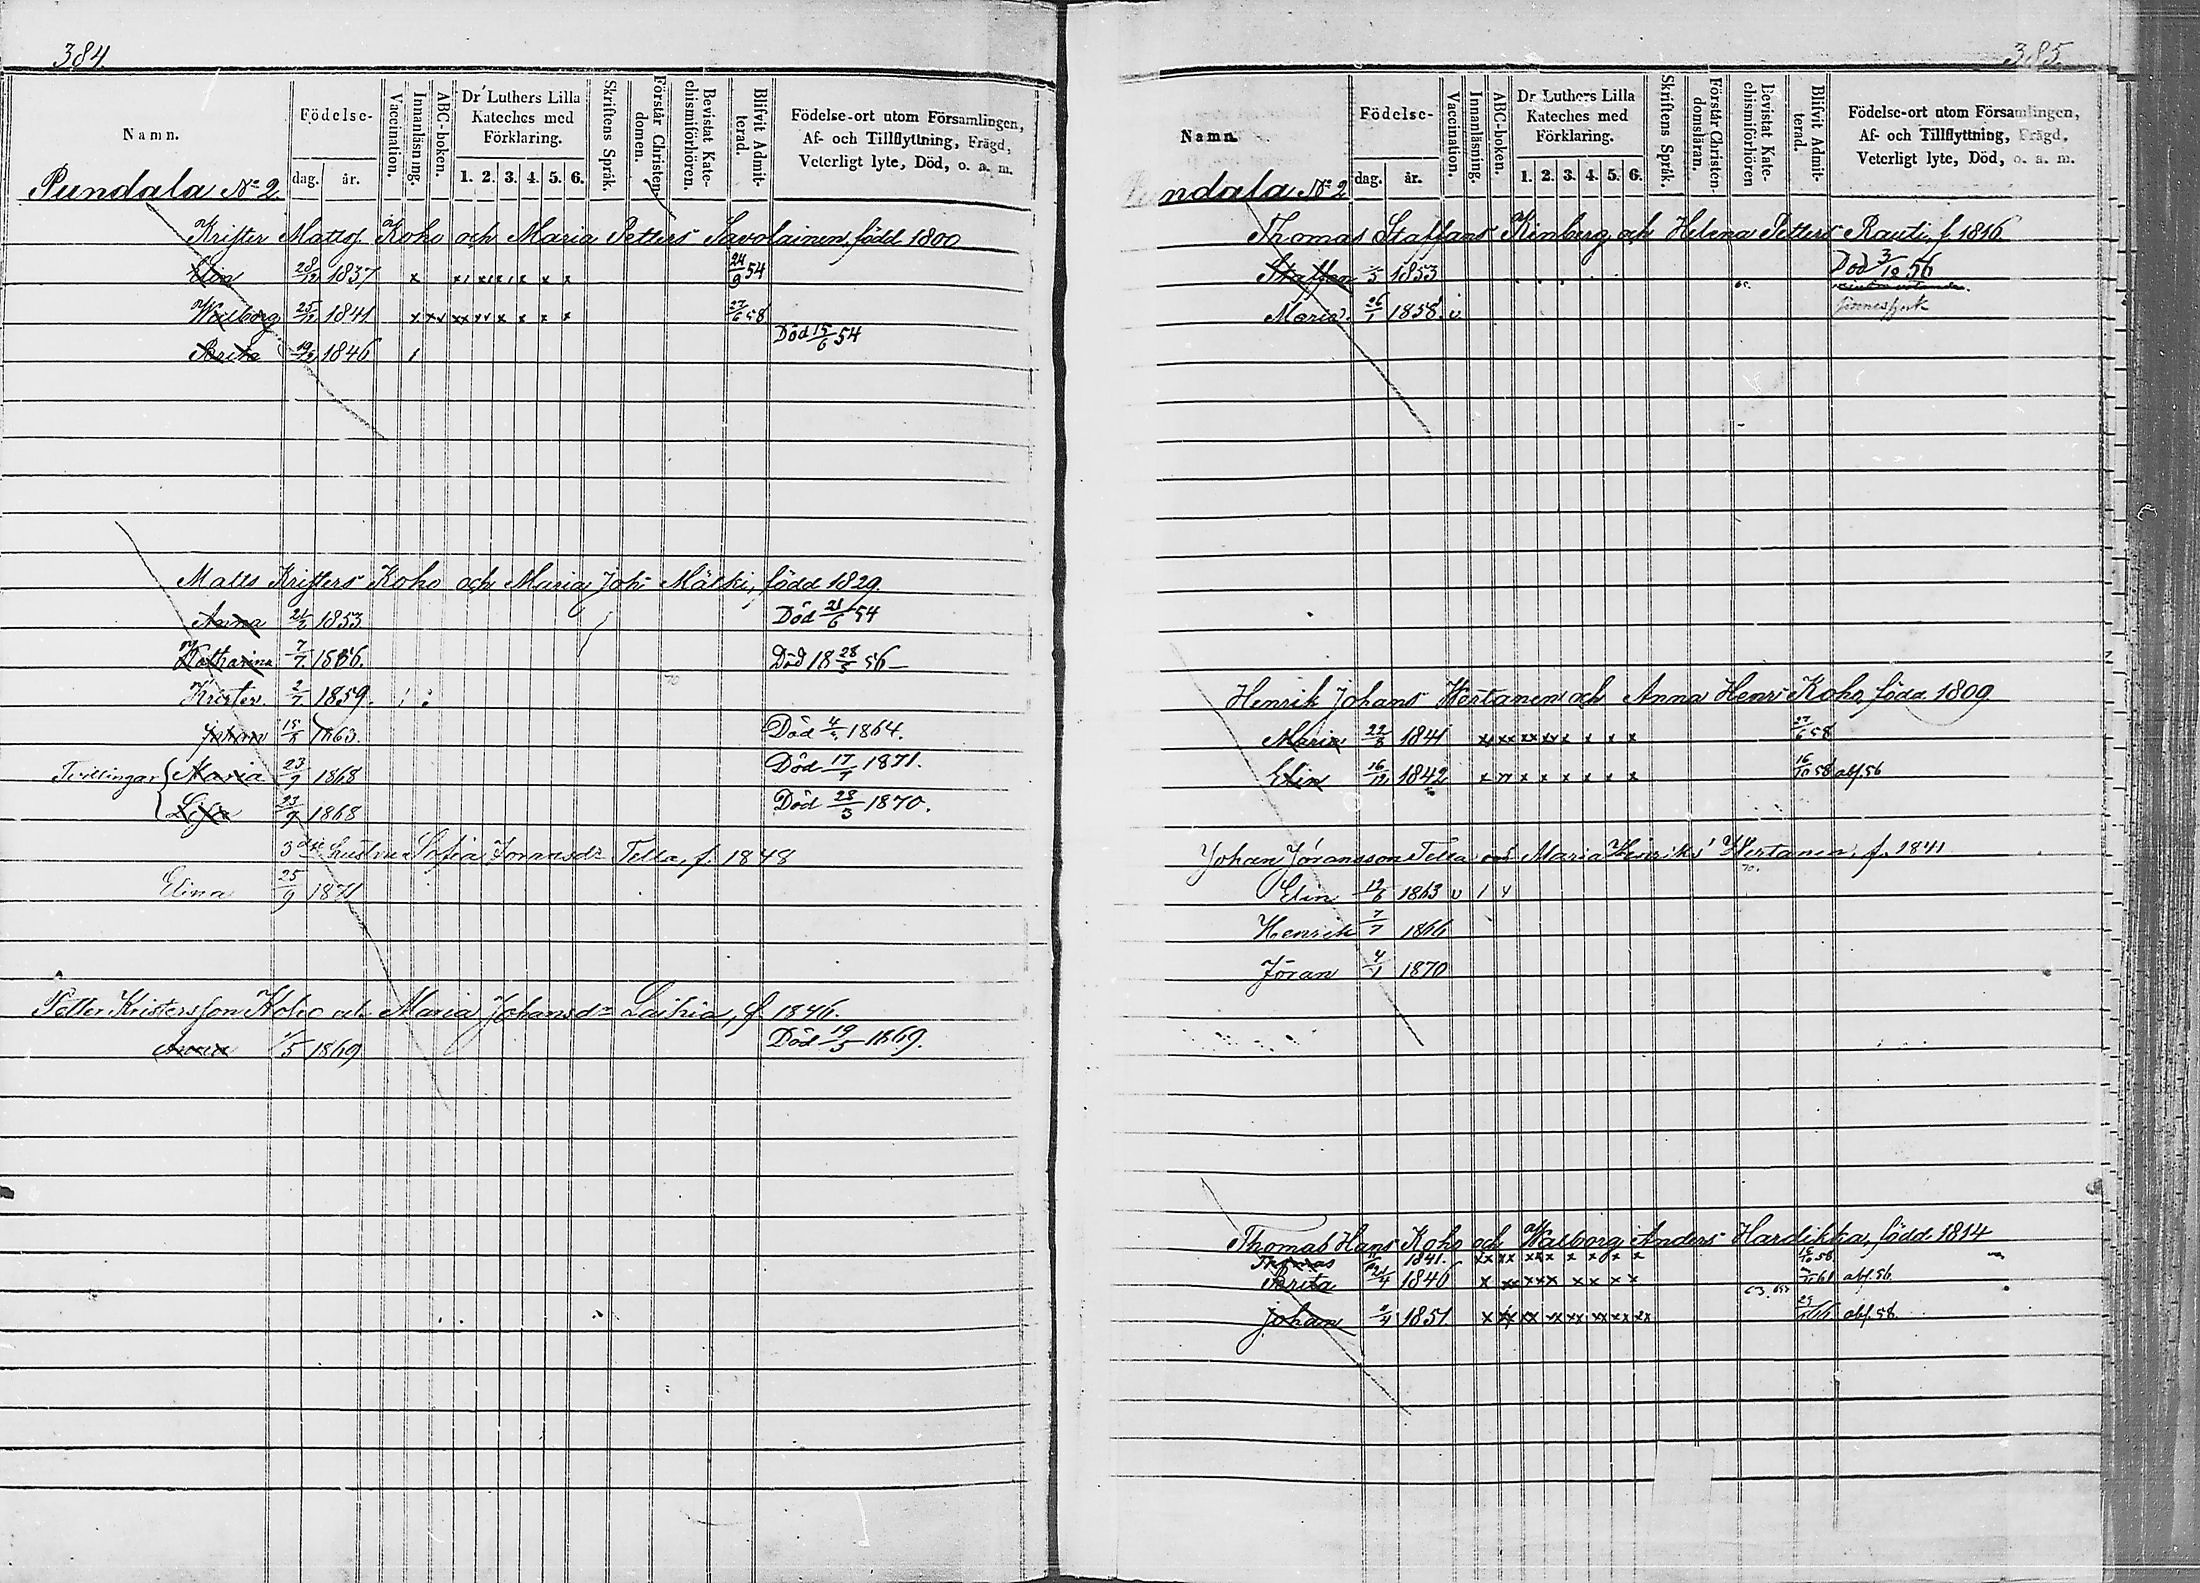 384.
Namn. Födelse- dag. år. Vaccination. Innanläsning. ABC-boken. Dr Luthers Lilla Kateches med Förklaring. 1. 2. 3. 4. 5. 6. Skriftens Språk. Förstår Christendomen. Bevistat Katechismiförhören. Blifvit Admitterad. Födelse-ort utom Församlingen, Af- och Tillflyttning, Frägd, Veterligt lyte, Död, o. a. m.
Pundala No 2.
Krister Mattss. Koho och Maria Petters Savolainen, född 1800
Elin 28/12 1837 24/9 54
Walborg 25/12 1841 27/6 58
Brita 1846 Död 15/6 54
Matts Kristers Koho och Maria Joh. Mälki, född 1829.
Anna 1853 Död 21/6 54
Katharina 7/7 1856. Död 18 28/5 56
Krister 2/7 1859.
Johan 1863. Död 1864.
Tvillingar Maria 23/9 1868 Död 17/7 1871.
Lisa 23/9 1868 Död 28/3 1870.
3dje hustru Sofia Joransdr Tella, f. 1848
Elina 25/9 1871
Petter Kristersson Koho och Maria Johansdr Laihia, f. 1846.
Anna 1/5 1869 Död 19/5 1869.
385
Namn. Födelse- dag. år. Vaccination. Innanläsning. ABC-boken. Dr Luthers Lilla Kateches med Förklaring. 1. 2. 3. 4. 5. 6. Skriftens Språk. Förstår Christendomsläran. Bevistat Katechismiförhören Blifvit Admitterad. Födelse-ort utom Församlingen, Af- och Tillflyttning, Frägd, Veterligt lyte, Död, o. a. m.
Pundala No 2
Thomas Staffans Kinberg och Helena Petters Rauti, f. 1816
Staffan 1853 Död 3/12 56
Maria. 26/1 1858. v
Henrik Johans Wertanen och Anna Henr. Koho, född 1809
Maria 22/8 1841 27/6 58
Elin 16/12 1842 16/10 58 abs. 56
Johan Jöransson Tella och Maria Henriks Wertanen, f. 1841
Elin 19/6 1863 v
Henrik 7/7 1866
Jöran 4/1 1870
Thomas Hans Koho och Walborg Anders Hardikka, född 1814
Thomas 1841. 16/10 58
Brita 1846 61 abs. 56
Johan 2/4 1851. 66 abs. 58